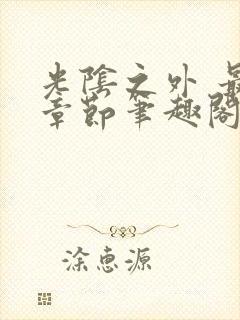 光陰之外 最
章節筆趣閣
涂惠源